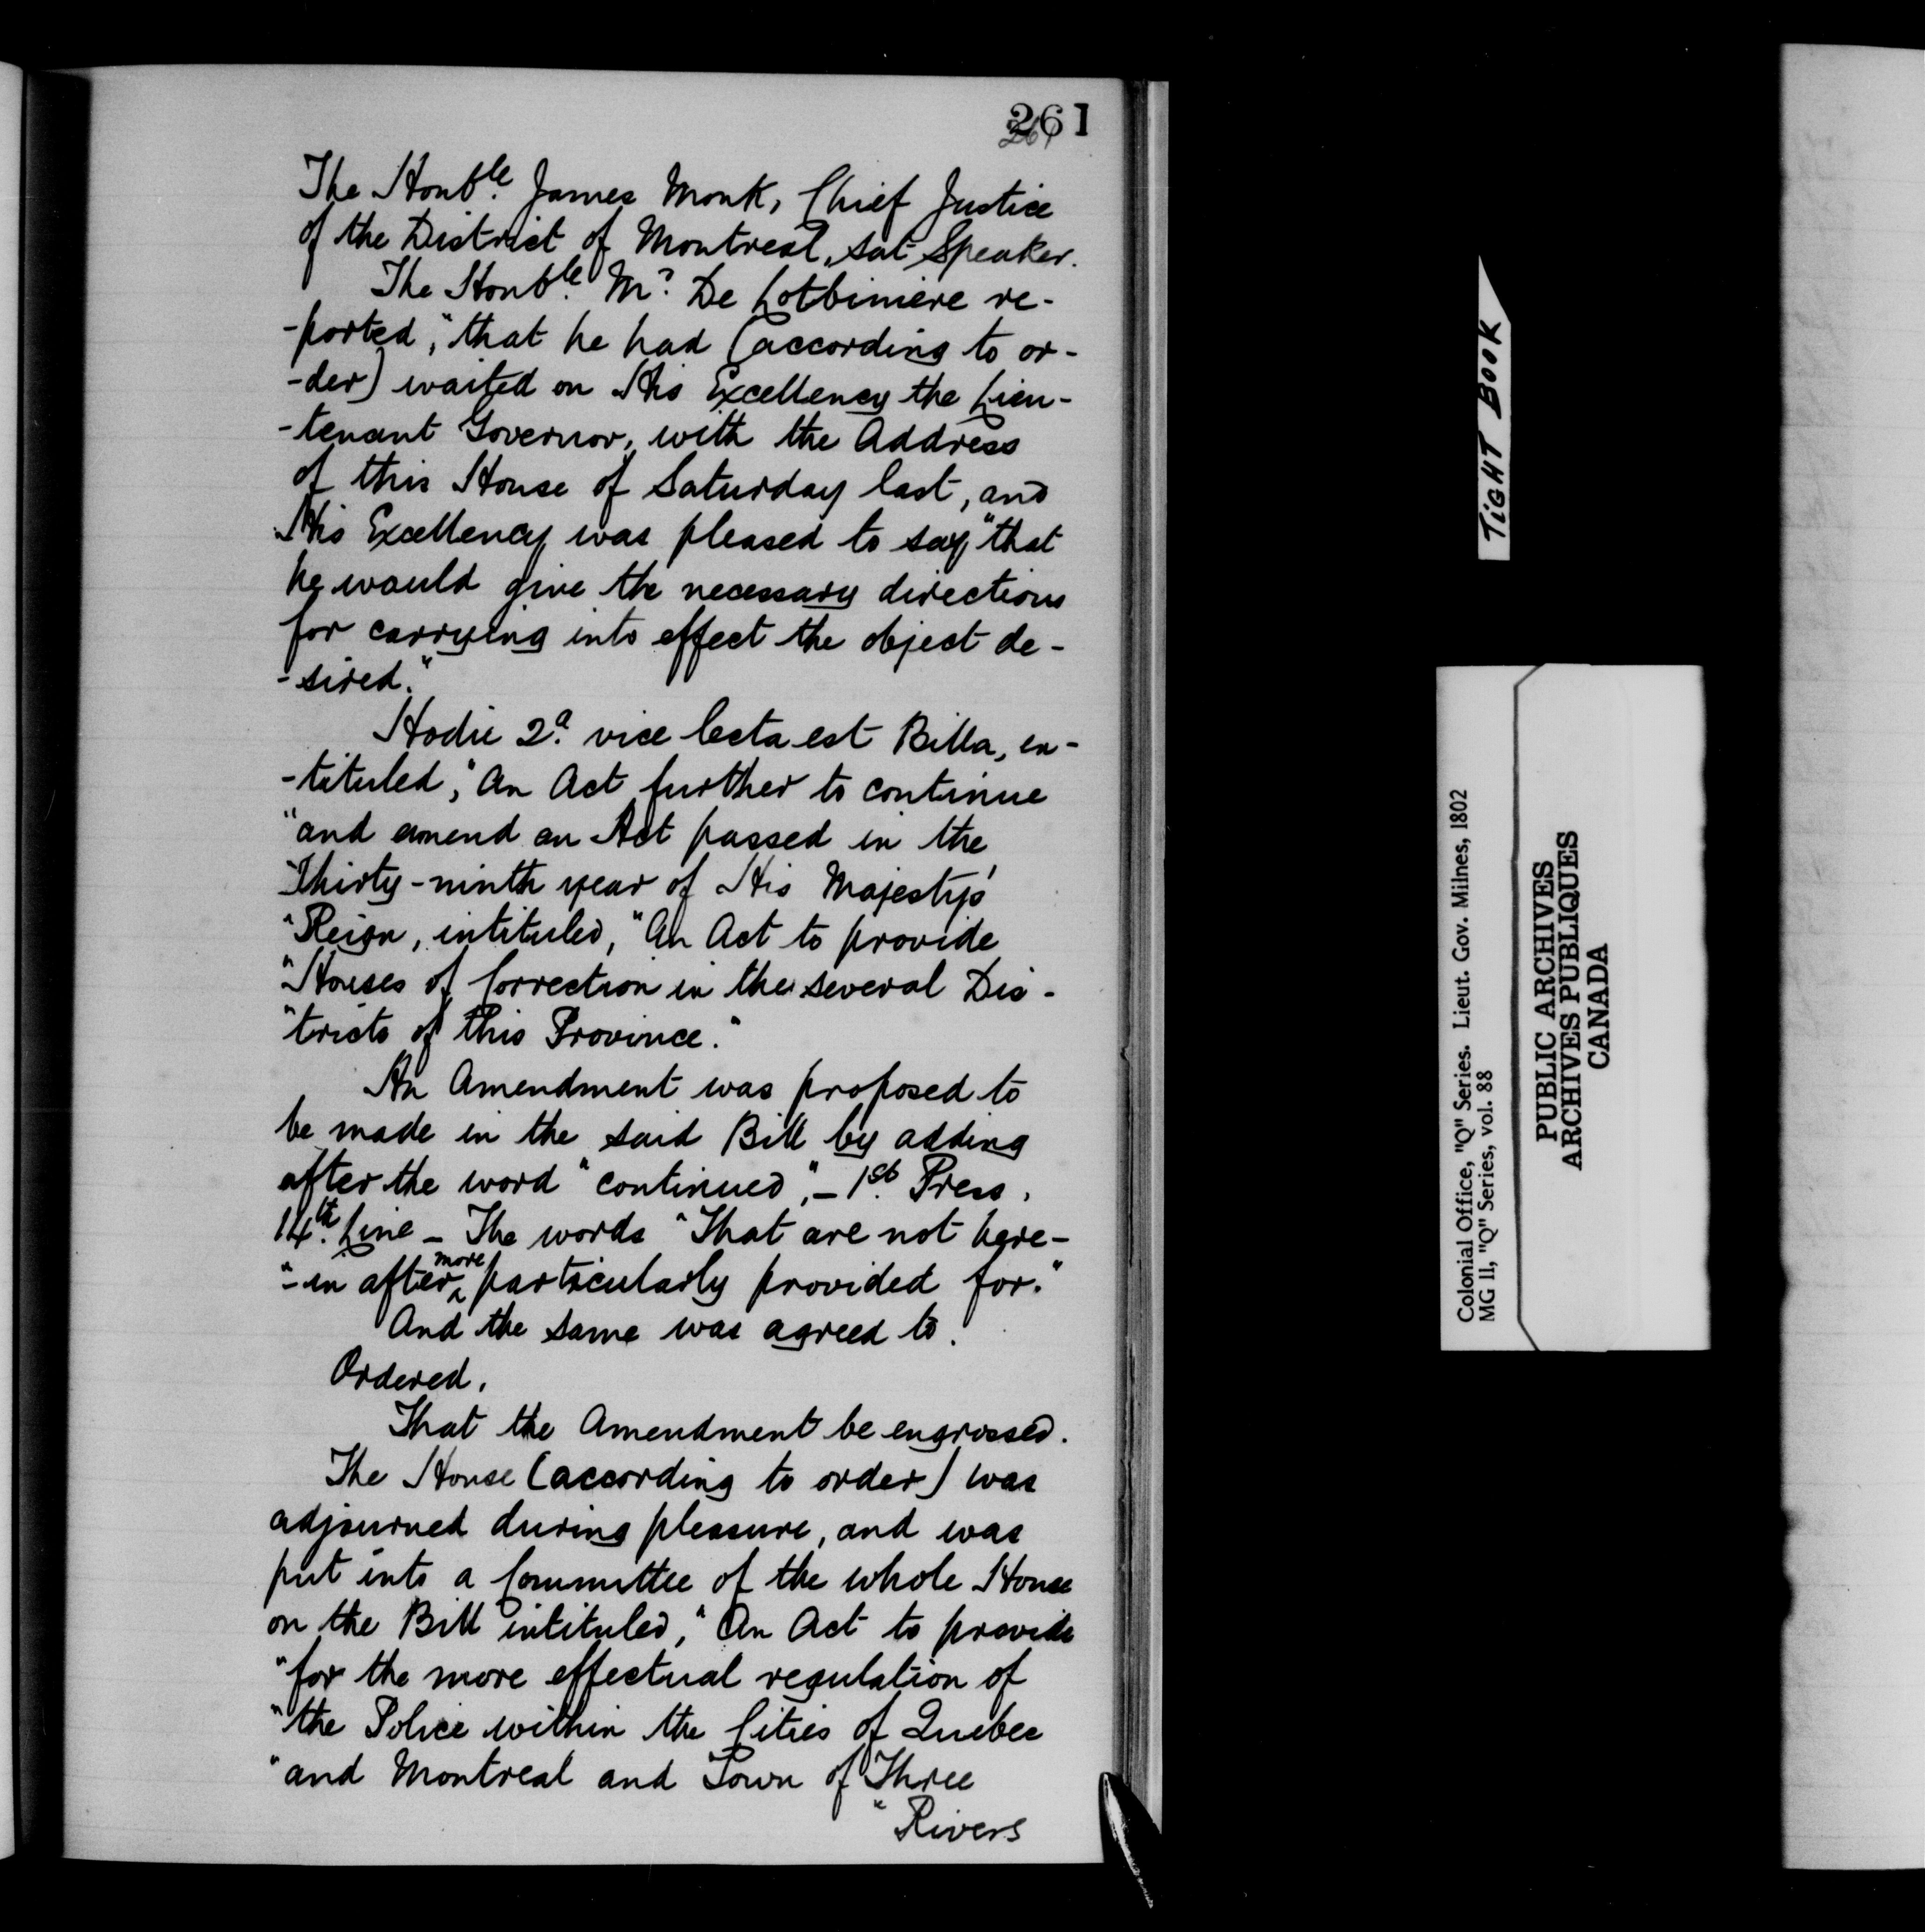 261
261
The Honble. James Monk, Chief Justice
of the District of Montreal, sat Speaker.
The Honble. Mr. De Lotbiniere re-
-ported, "that he had (according to or-
-der) waited on His Excellency the Lieu-
-tenant Governor, with the Address
of this House of Saturday last, and
His Excellency was pleased to say "that
he would give the necessary directions
for carrying into effect the object de-
-sired."
Hodie 2a. vice lecta est Billa, en-
-tituled, "An Act further to continue
"and amend an Act passed in the
Thirty-ninth year of His Majesty's
"Reign, intituled, "An Act to provide
"Houses of Correction in the several Dis-
"tricts of this Province."
An Amendment was proposed to
be made in the said Bill by adding
after the word "continued", - 1st. Press.
14th. Line - The words "That are not here-
"-in after more particularly provided for."
And the same was agreed to.
Ordered.
That the Amendment be engrossed.
The House (according to order) was
adjourned during pleasure, and was
put into a Committee of the whole House
on the Bill intituled, "An Act to provide
"for the more effectual regulation of
"the Police within the Cities of Quebec
"and Montreal and Town of Three
"Rivers
TIGHT BOOK
Colonial Office, "Q" Series. Lieut. Gov. Milnes, 1802
MG 11, "Q" Series, vol. 88
PUBLIC ARCHIVES
ARCHIVES PUBLIQUES
CANADA